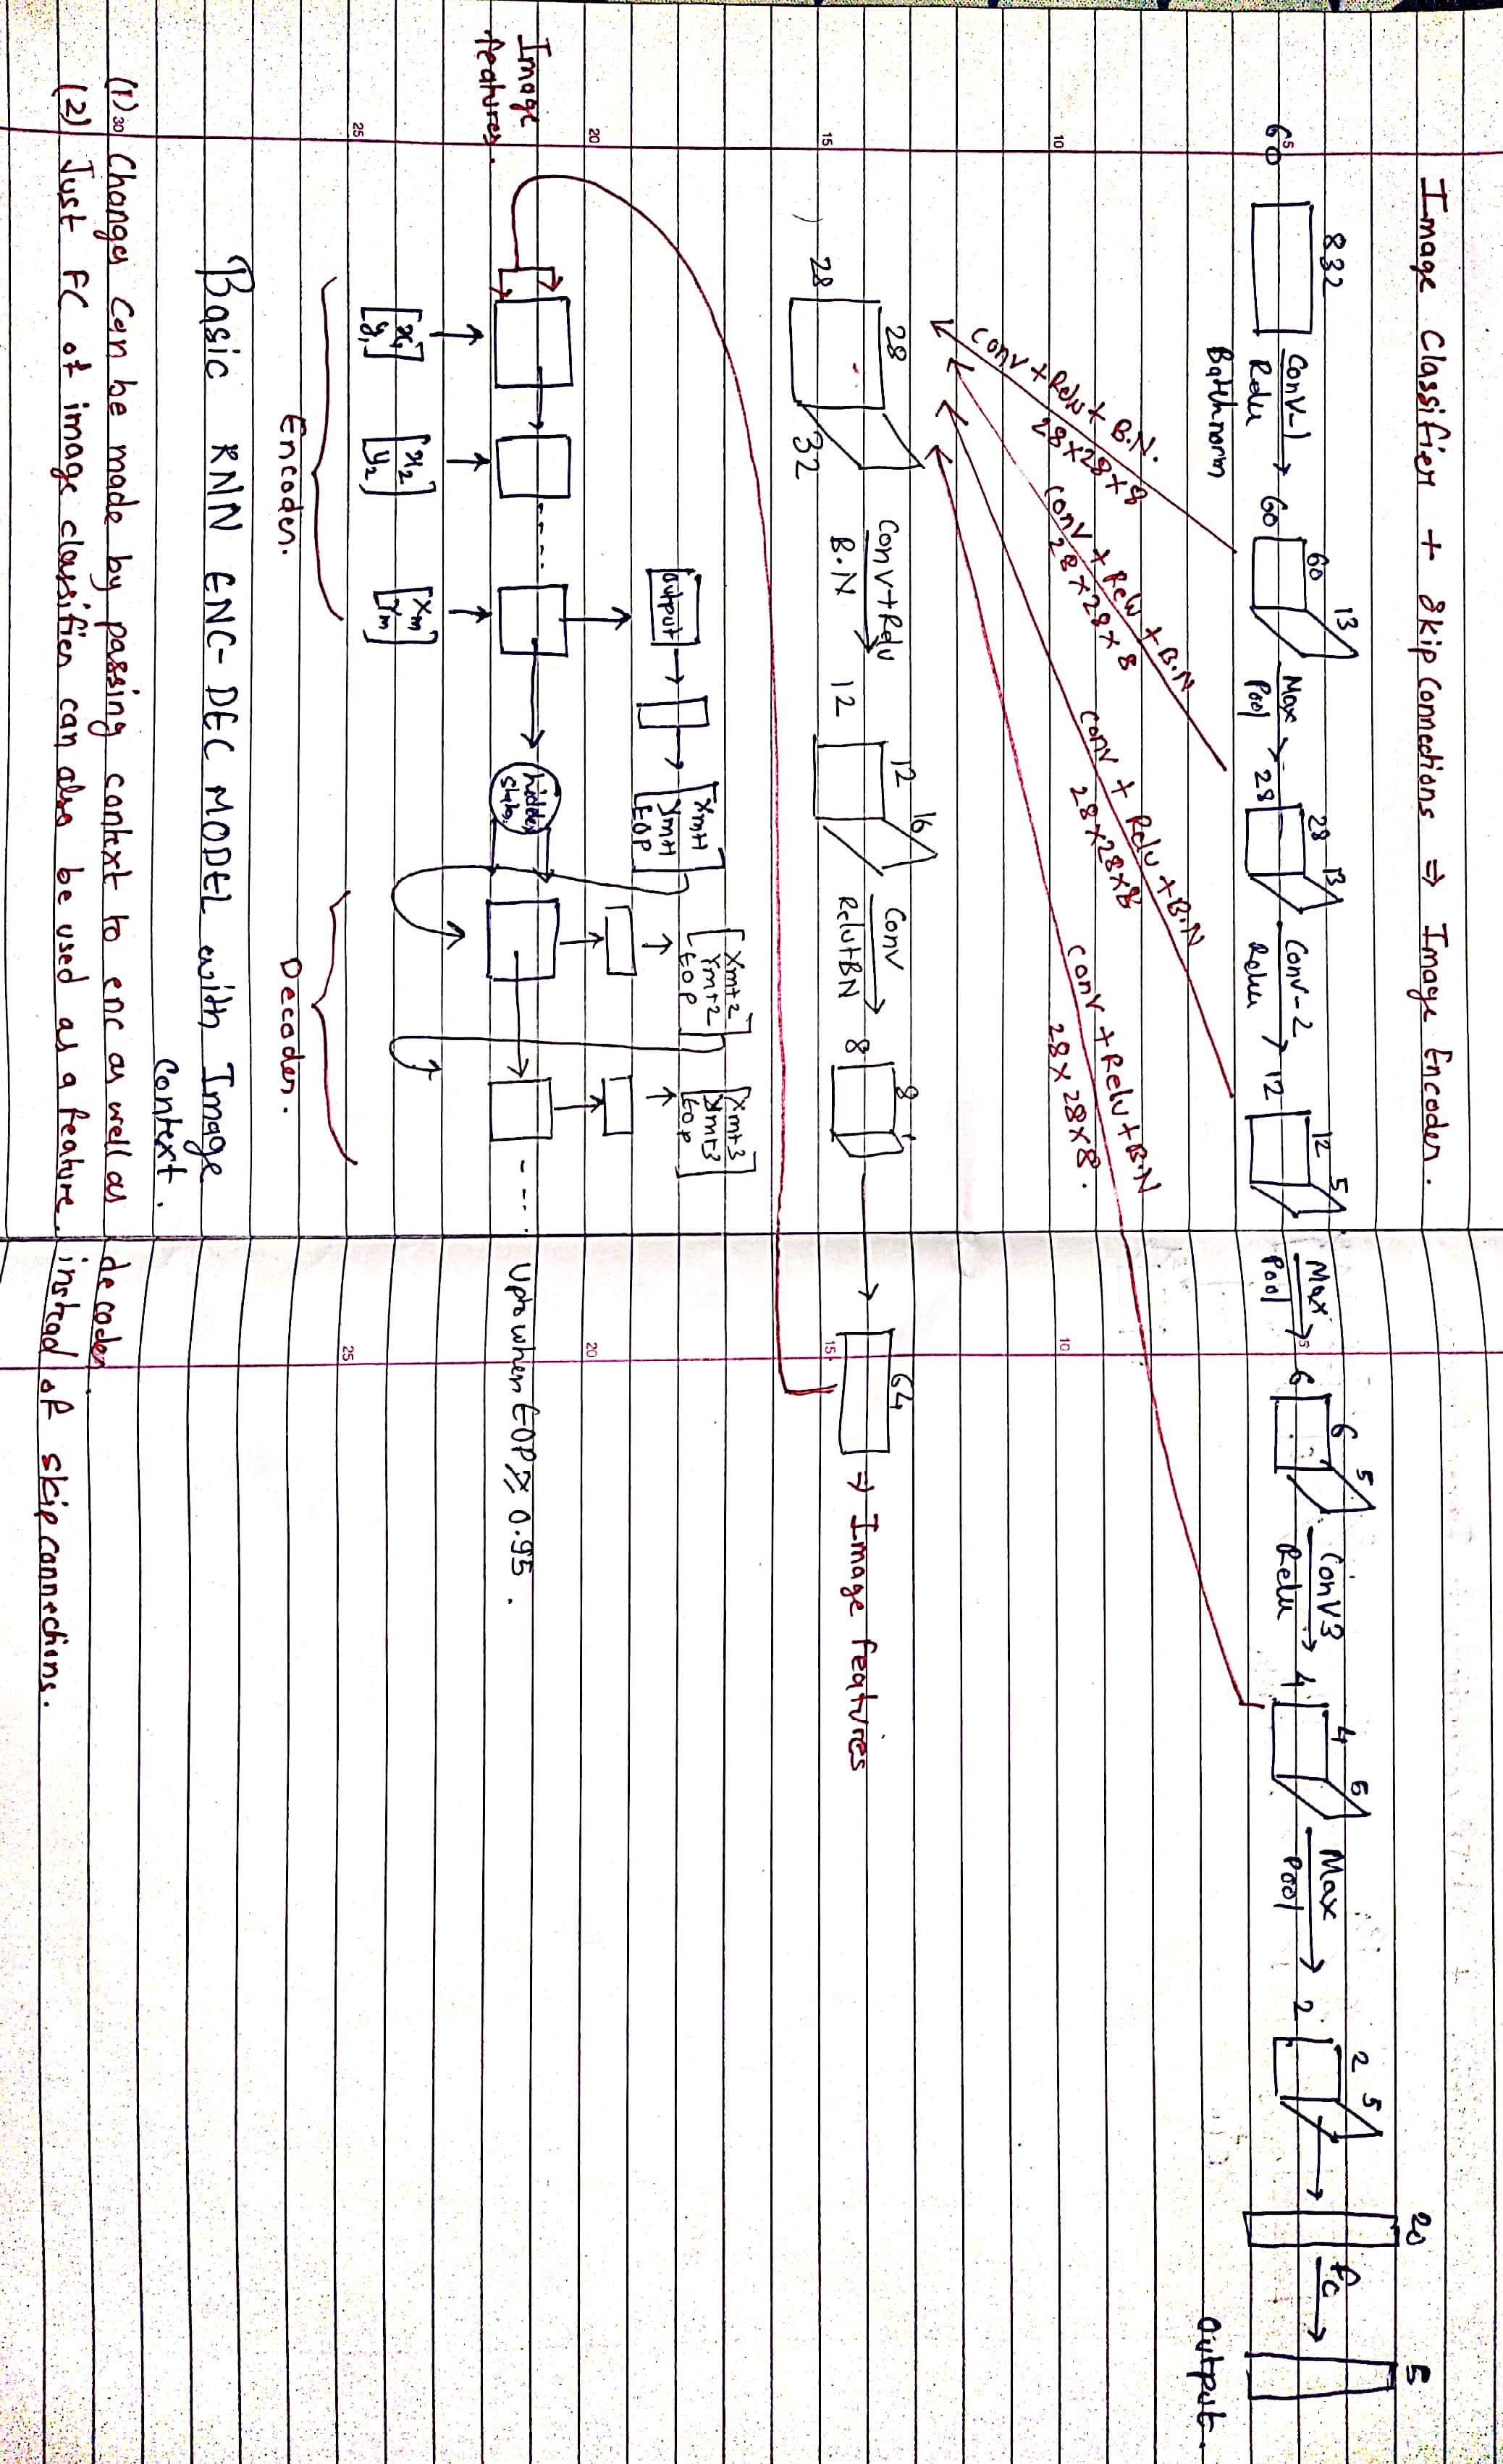 Image Classifier + Skip Connections ⇒ Image Encoder.
60 832 Conv-1 Relu Batchnorm 60 60 13 Max Pool 28 28 13 Conv-2 Relu 12 12 5 Max Pool 6 6 5 Conv3 Relu 4 4 5 Max Pool 2 2 5 20 FC 5
Output.
Conv + Relu + B.N.
28×28×8
Conv + Relu + B.N
28×28×8
Conv + Relu + B.N
28×28×8
Conv + Relu + B.N
28×28×8.
28 28 32 Conv+Relu B.N 12 12 16 Conv Relu+BN 8 8 1 64 ⇒ Image features
Output
Xm+1
Ym+1
EOP
Xm+2
Ym+2
EOP
Xm+3
Ym+3
EOP
Image
features.
hidden
states
Upto when EOP ≥ 0.95.
x1
y1
x2
y2
Xm
Ym
Encoder.
Decoder.
Basic RNN ENC-DEC MODEL with Image
Context.
(1) Changes can be made by passing context to enc as well as decoder.
(2) Just FC of image classifier can also be used as a feature instead of skip connections.
5
10
15
20
25
30
5
10
15
20
25